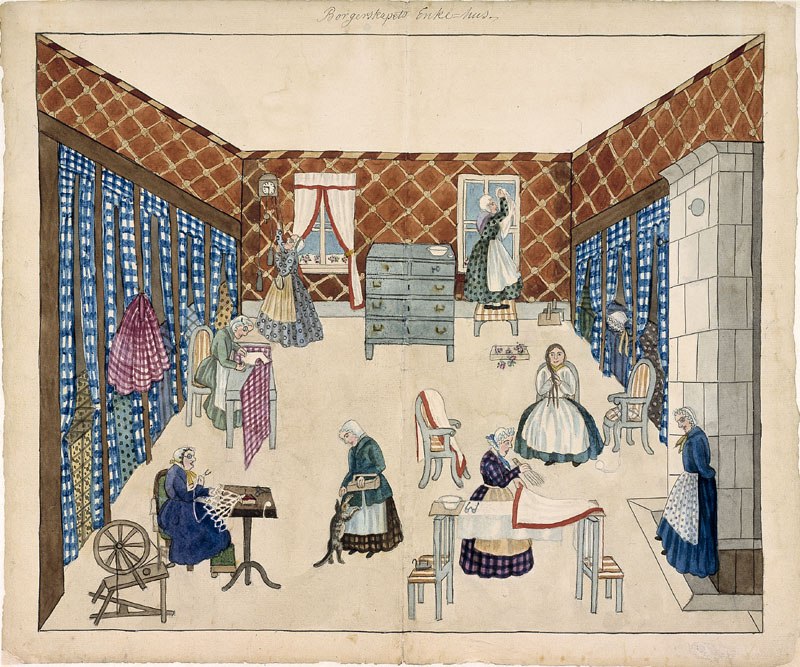 Borgerskapets Enke=hus.